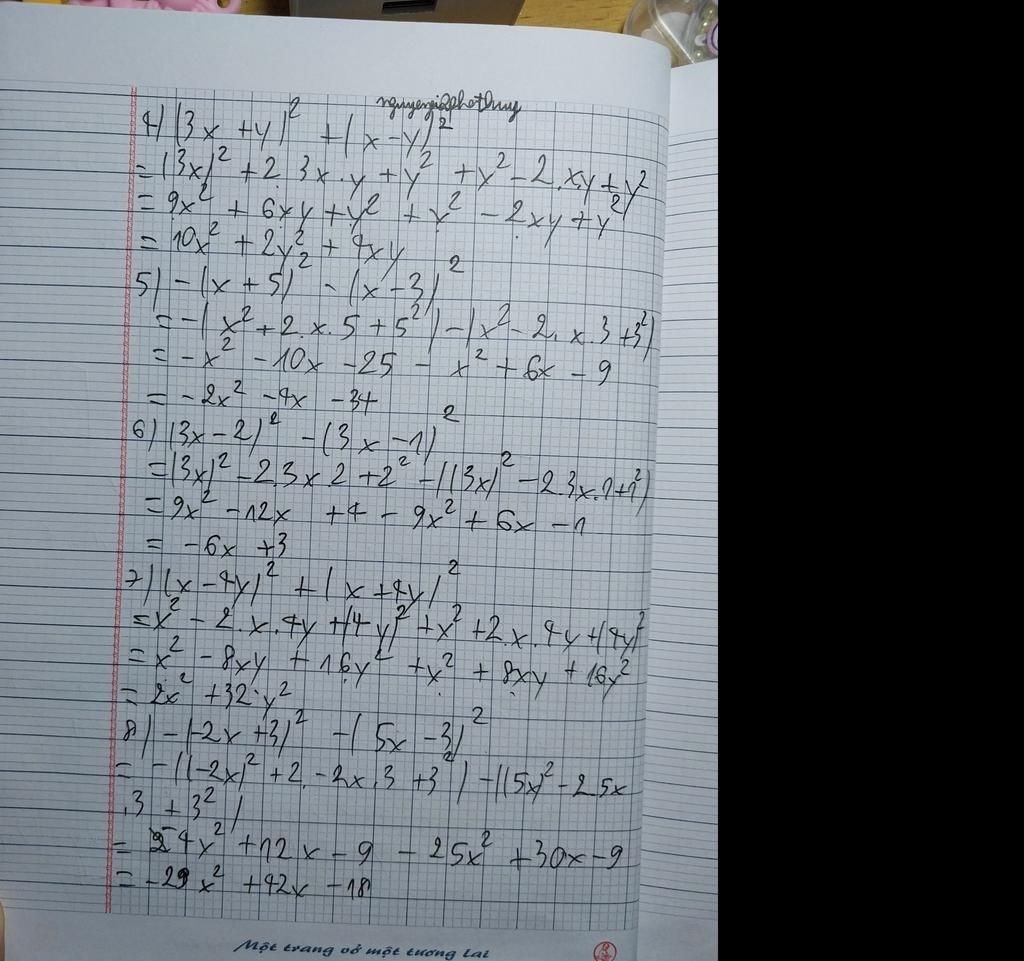 4) (3x + y)² + (x - y)²
= (3x)² + 2 3x.y + y² + x² - 2.xy + y²
= 9x² + 6xy + y² + x² - 2xy + y²
= 10x² + 2y² + 4xy
5) - (x + 5)² - (x - 3)²
= - (x² + 2.x.5 + 5²) - (x² - 2.x.3 + 3²)
= - x² - 10x - 25 - x² + 6x - 9
= - 2x² - 4x - 34
6) (3x - 2)² - (3x - 1)²
= (3x)² - 2.3x 2 + 2² - ((3x)² - 2.3x.1 + 1²)
= 9x² - 12x + 4 - 9x² + 6x - 1
= - 6x + 3
7) (x - 4y)² + (x + 4y)²
= x² - 2.x.4y + (4y)² + x² + 2.x.4y + (4y)²
= x² - 8xy + 16y² + x² + 8xy + 16y²
= 2x² + 32y²
8) - (-2x + 3)² - (5x - 3)²
= - ((-2x)² + 2.-2x.3 + 3²) - ((5x)² - 2.5x
.3 + 3²)
= -4x² + 12x - 9 - 25x² + 30x - 9
= - 29x² + 42x - 18
Một trang vở một tương lai